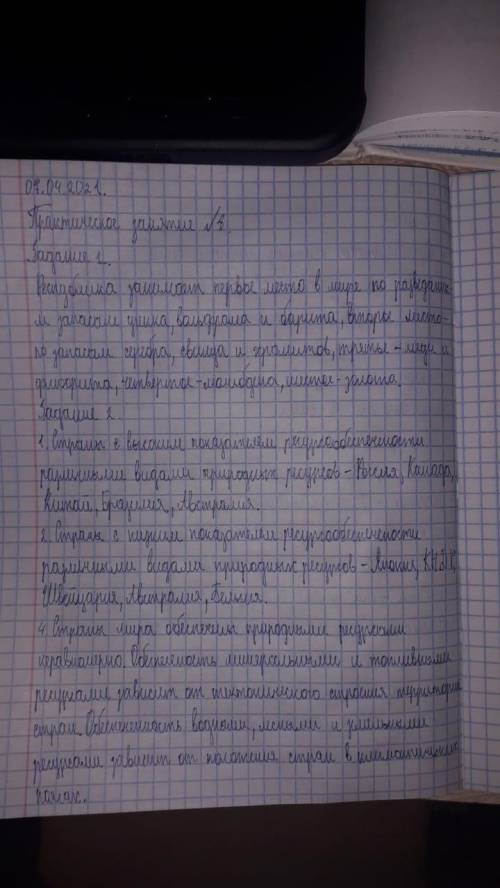 07.04.2021.
Практическое занятие №7.
Задание 1.
Республика занимает первое место в мире по разведанны-
м запасам цинка, вольфрама и барита, второе место-
по запасам серебра, свинца и хромитов, третье - меди и
флюорита, четвертое - молибдена, шестое - золота.
Задание 2
1. Страны с высоким показателем ресурсообеспеченности
различными видами природных ресурсов - Россия, Канада,
Китай, Бразилия, Австралия.
2. Страны с низким показателем ресурсообеспеченности
различными видами природных ресурсов - Япония,
Швейцария, Австралия, Бельгия.
4. Страны мира обеспечены природными ресурсами
неравномерно. Обеспеченость минеральными и топливными
ресурсами зависит от тектонического строения территории
стран. Обеспеченность водными, лесными и земельными
ресурсами зависит от положения стран в климатических
поясах.